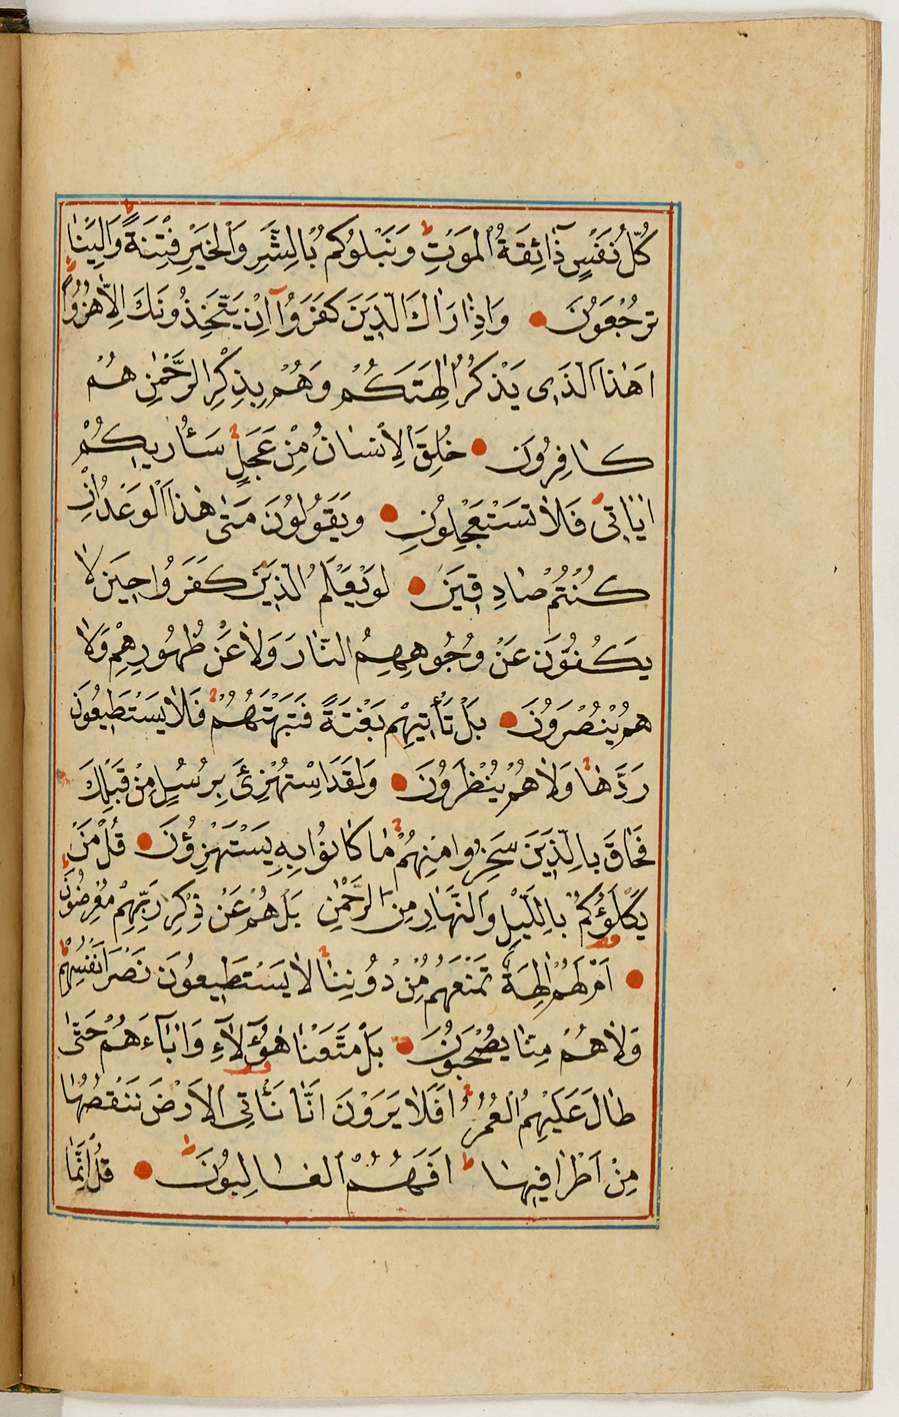 كُلُّ نَفْسٍ ذَائِقَةُ الْمَوْتِ وَنَبْلُوكُمْ بِالشَّرِّ وَالْخَيْرِ فِتْنَةً وَاِلَيْنَا
تُرْجَعُونَ وَاِذَا رَاٰكَ الَّذِينَ كَفَرُوا اِنْ يَتَّخِذُونَكَ اِلَّا هُزُوًا
اَهٰذَا الَّذِى يَذْكُرُ اٰلِهَتَكُمْ وَهُمْ بِذِكْرِ الرَّحْمٰنِ هُمْ
كَافِرُونَ خُلِقَ الْاِنْسَانُ مِنْ عَجَلٍ سَاُرِيكُمْ
اٰيَاتِى فَلَا تَسْتَعْجِلُونِ وَيَقُولُونَ مَتٰى هٰذَا الْوَعْدُ اِنْ
كُنْتُمْ صَادِقِينَ لَوْ يَعْلَمُ الَّذِينَ كَفَرُوا حِينَ لَا
يَكُفُّونَ عَنْ وُجُوهِهِمُ النَّارَ وَلَا عَنْ ظُهُورِهِمْ وَلَا
هُمْ يُنْصَرُونَ بَلْ تَأْتِيهِمْ بَغْتَةً فَتَبْهَتُهُمْ فَلَا يَسْتَطِيعُونَ
رَدَّهَا وَلَا هُمْ يُنْظَرُونَ وَلَقَدِ اسْتُهْزِئَ بِرُسُلٍ مِنْ قَبْلِكَ
فَحَاقَ بِالَّذِينَ سَخِرُوا مِنْهُمْ مَا كَانُوا بِهِ يَسْتَهْزِؤُنَ قُلْ مَنْ
يَكْلَؤُكُمْ بِالَّيْلِ وَالنَّهَارِ مِنَ الرَّحْمٰنِ بَلْ هُمْ عَنْ ذِكْرِ رَبِّهِمْ مُعْرِضُونَ
اَمْ لَهُمْ اٰلِهَةٌ تَمْنَعُهُمْ مِنْ دُونِنَا لَا يَسْتَطِيعُونَ نَصْرَ اَنْفُسِهِمْ
وَلَا هُمْ مِنَّا يُصْحَبُونَ بَلْ مَتَّعْنَا هٰؤُلَاءِ وَاٰبَاءَهُمْ حَتّٰى
طَالَ عَلَيْهِمُ الْعُمُرُ اَفَلَا يَرَوْنَ اَنَّا نَأْتِى الْاَرْضَ نَنْقُصُهَا
مِنْ اَطْرَافِهَا اَفَهُمُ الْغَالِبُونَ قُلْ اِنَّمَا